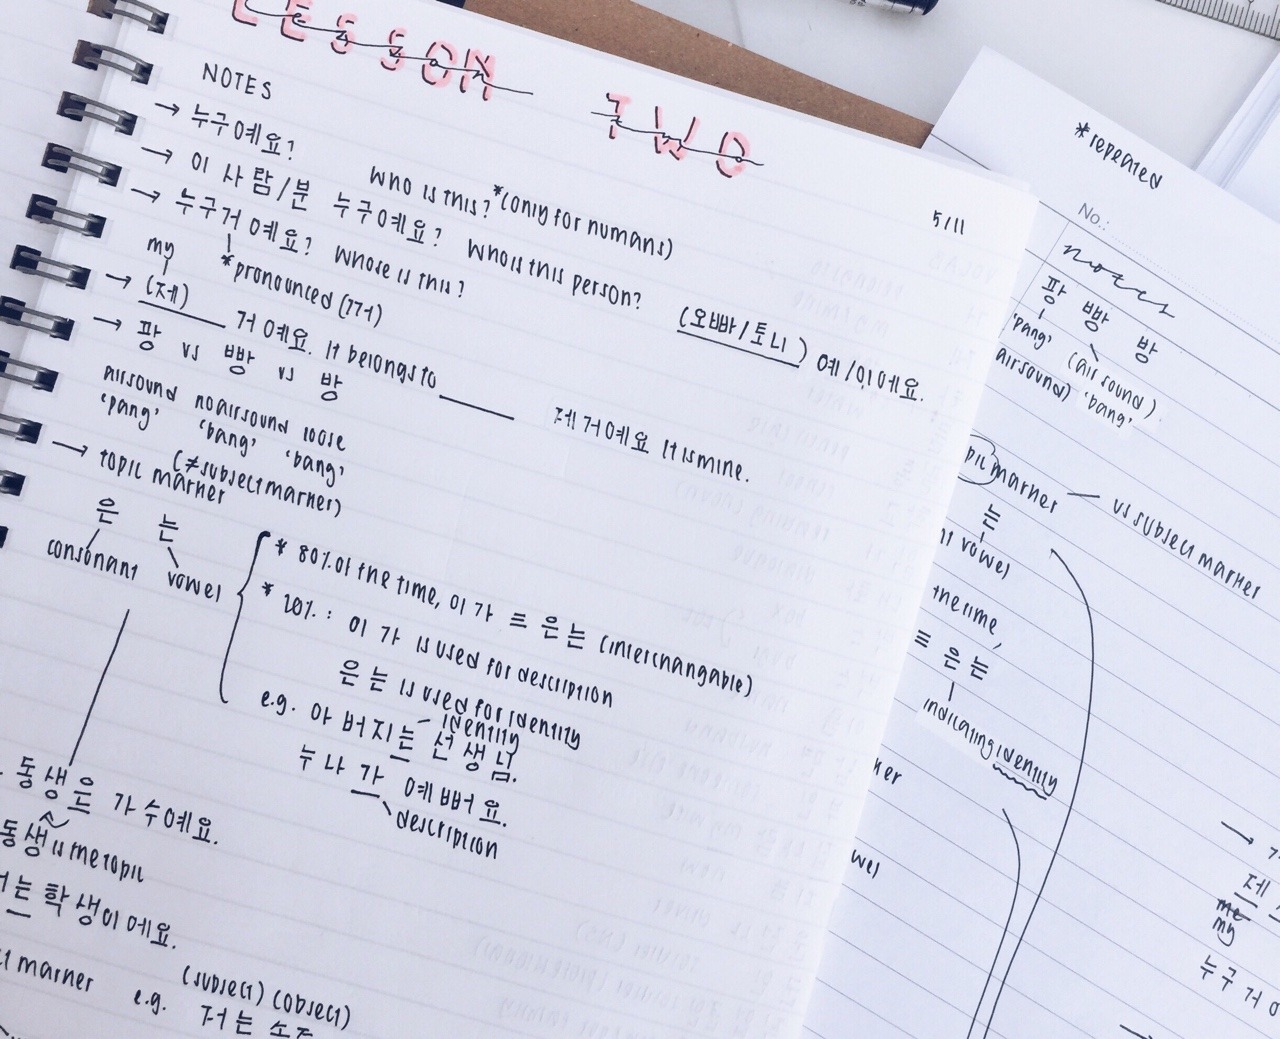 LESSON TWO
NOTES
5/11
→ 누구예요? Who is this? *(only for humans)
→ 이 사람/분 누구예요? Who is this person? (오빠/토니) 예/이예요.
→ 누구거예요? Whose is this?
*pronounced (꺼)
my
→ (제) 거예요. It belongs to ____ 제거예요 It is mine.
→ 팡 vs 빵 vs 방
airsound no airsound loose
'pang' 'bang' 'bang'
→ topic marker (≠ subject marker)
은 는
consonant vowel
* 80% of the time, 이 가 = 은 는 (interchangable)
* 20%: 이 가 is used for description
은 는 is used for identity
– identity
e.g. 아버지는 선생님.
누나가 예뻐요.
description
동생은 가수예요.
동생 is the topic
는 학생이에요.
marker (subject) (object)
e.g. 저는
*repeated
No:
notes
팡 빵 방
'pang' (air sound)
airsound) 'bang'
marker — vs subject marker
는
vowel
the time,
= 은 는
indicating identity
제
me
my
누구거